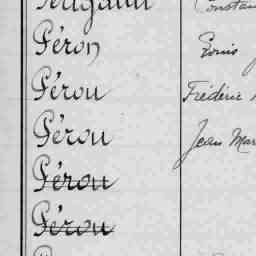 Péron Louis
Pérou Frédéric
Pérou Jean Mar
Pérou
Pérou